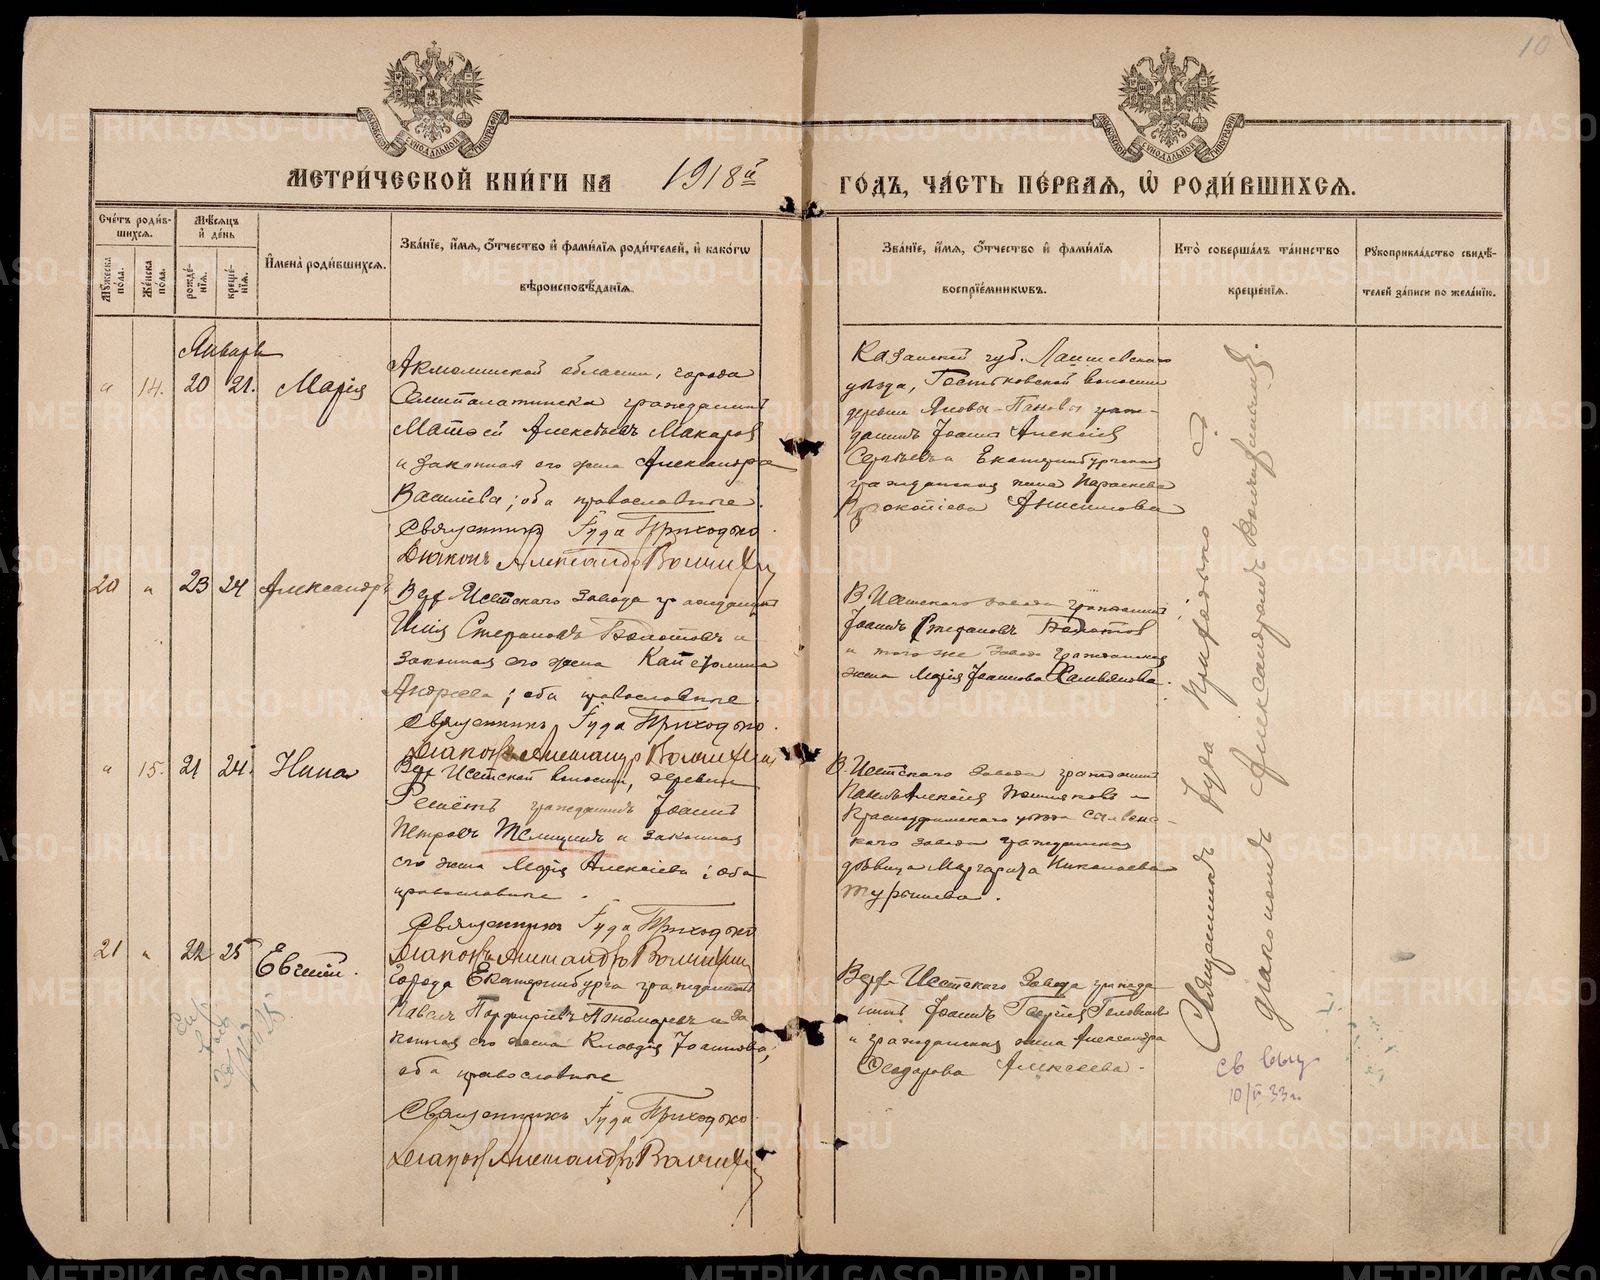 10
МЕТРИ́ЧЕСКОЙ КНИ́ГИ НА 1918й ГО́ДЪ, ЧА́СТЬ ПЕ́РВАЯ, Ѡ҆ РОДИ́ВШИХСЯ.
Сче́тъ роди́в-
шихся.
Мꙋ́жеска по́ла.
Же́нска по́ла.
Мѣ́сяцъ и҆ де́нь
рожде́нїя.
креще́нїя.
И҆мена̀ роди́вшихся.
Зва́нїе, и҆́мя, ѻ҆́тчество и҆ фами́лїя роди́телей, и҆ како́гѡ
вѣроисповѣ́данїя.
Зва́нїе, и҆́мя, ѻ҆́тчество и҆ фами́лїя
воспрїе́мникѡвъ.
Кто̀ соверша́лъ та́инство
креще́нїя.
Рꙋкоприкла́дство свидѣ́-
телей за́писи по жела́нїю.
Январь
" 14. 20 21. Марія
Акмолинской области, города
Семипалатинска гражданинъ
Матѳей Алексѣевъ Макаровъ
и законная его жена Александра
Васильева; оба православные.
Священникъ Іуда Приходько.
Діаконъ Александръ
Казанской губ. Лаишевскаго
уѣзда, волости
деревни гражданинъ Іоаннъ Алексіевъ
Сергѣевъ и Екатеринбургская
гражданская жена Параскева
Прокопіева Анисимова
20 " 23 24 Александръ
В. Исетскаго завода гражданинъ
Илія Стефановъ Болотовъ и
законная его жена Капетолина
Андреева; оба православные.
Священникъ Іуда Приходько.
Діаконъ Александръ
В. Исетскаго завода гражданинъ
Іоаннъ Стефановъ Болотовъ
и того же завода гражданская
жена Марія Іоаннова
" 15. 21 24. Нина
Исетской волости, деревни
Решетъ гражданинъ Іоаннъ
Петровъ Телицинъ и законная
его жена Марія Алексіева; оба
православные.
Священникъ Іуда Приходько
Діаконъ Александръ
В. Исетскаго завода гражданинъ
Павелъ Алексіевъ и
Красноуфимскаго уѣзда Сылвен-
скаго завода гражданская
дѣвица Маргарита Николаева
Турышева.
21 " 22 25 Евгеній.
Города Екатеринбурга гражданинъ
Павелъ Порфиріевъ Пономаревъ и за
конная его жена Клавдія Іоаннова;
оба православные
Священникъ Іуда Приходько.
Діаконъ Александръ
Исетскаго Завода гражда
нинъ Іоаннъ Георгіевъ Головинъ
и гражданская жена Александра
Ѳеодорова Алексеева.
Священникъ Іуда Приходько с
діакономъ Александромъ
св выд
10/V 33г.
METRIKI.GASO-URAL.RU